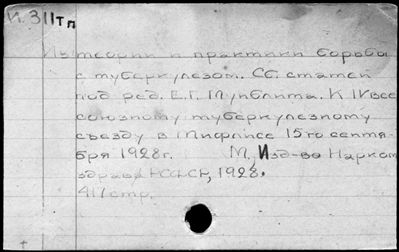 И.311тп
Из теории и практики борьбы
с туберкулезом. Сб. статей
под ред. Е.Г. Мунблита. К IV все
союзному туберкулезному
съезду в Тифлисе 15го сентя-
бря 1928г. М, Изд-во Нарком
здрава РСФСР, 1928.
417стр.